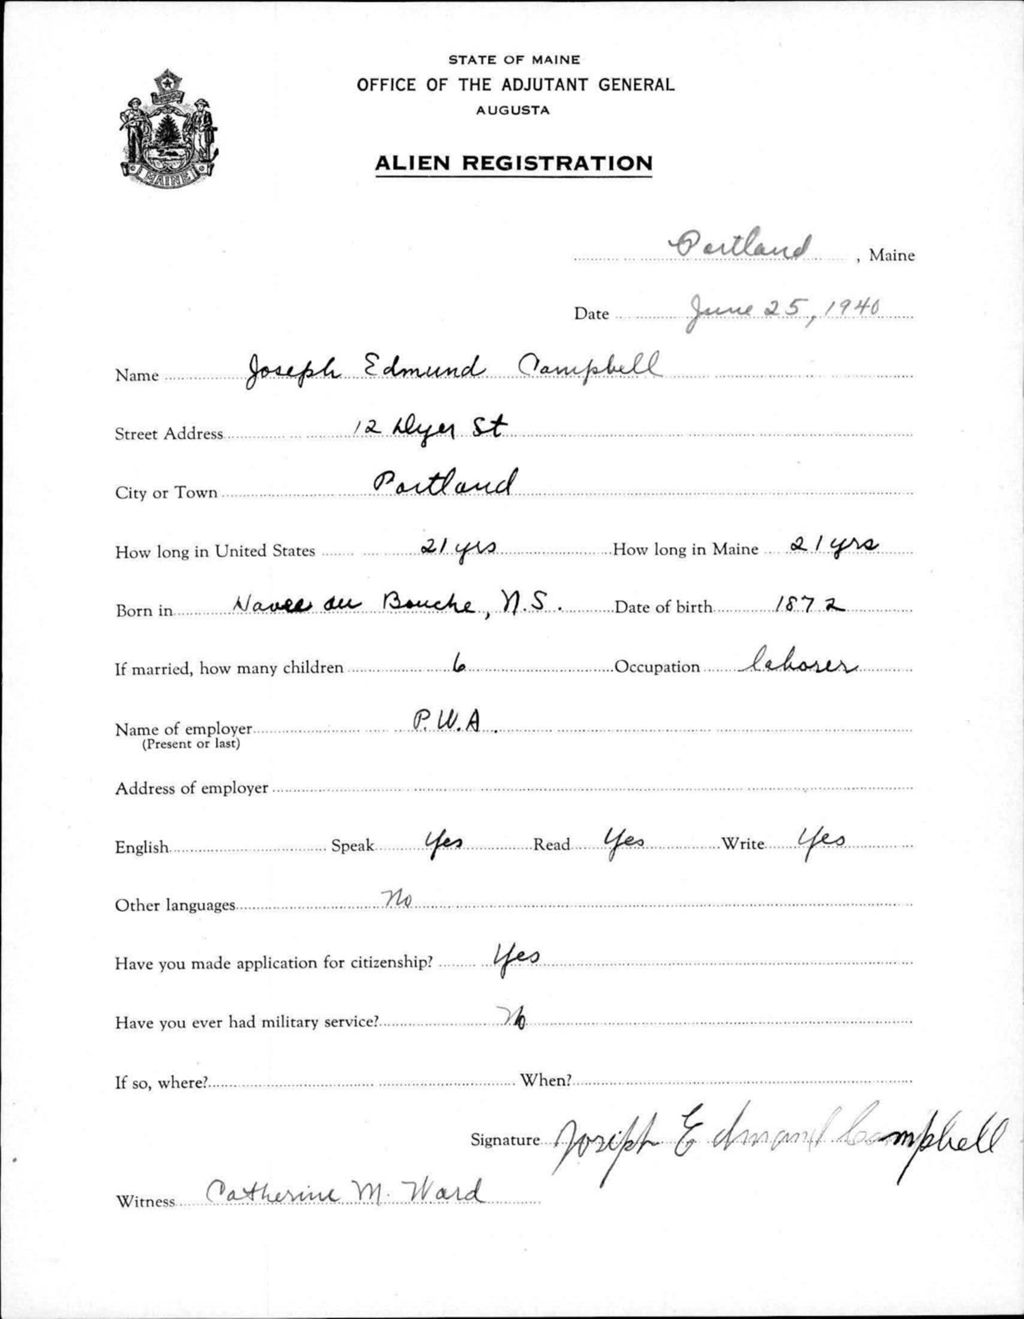 STATE OF MAINE
OFFICE OF THE ADJUTANT GENERAL
AUGUSTA
ALIEN REGISTRATION
MAINE
Portland, Maine
Date June 25, 1940
Name Joseph Edmund Campbell
Street Address 12 Dyer St
City or Town Portland
How long in United States 21 yrs How long in Maine 21 yrs
Born in Havre au Bouche, N.S. Date of birth 1872
If married, how many children 6 Occupation laborer
Name of employer P.W.A.
(Present or last)
Address of employer
English Speak Yes Read Yes Write Yes
Other languages No
Have you made application for citizenship? Yes
Have you ever had military service? No
If so, where? When?
Signature Joseph Edmand Campbell
Witness Catherine M. Ward